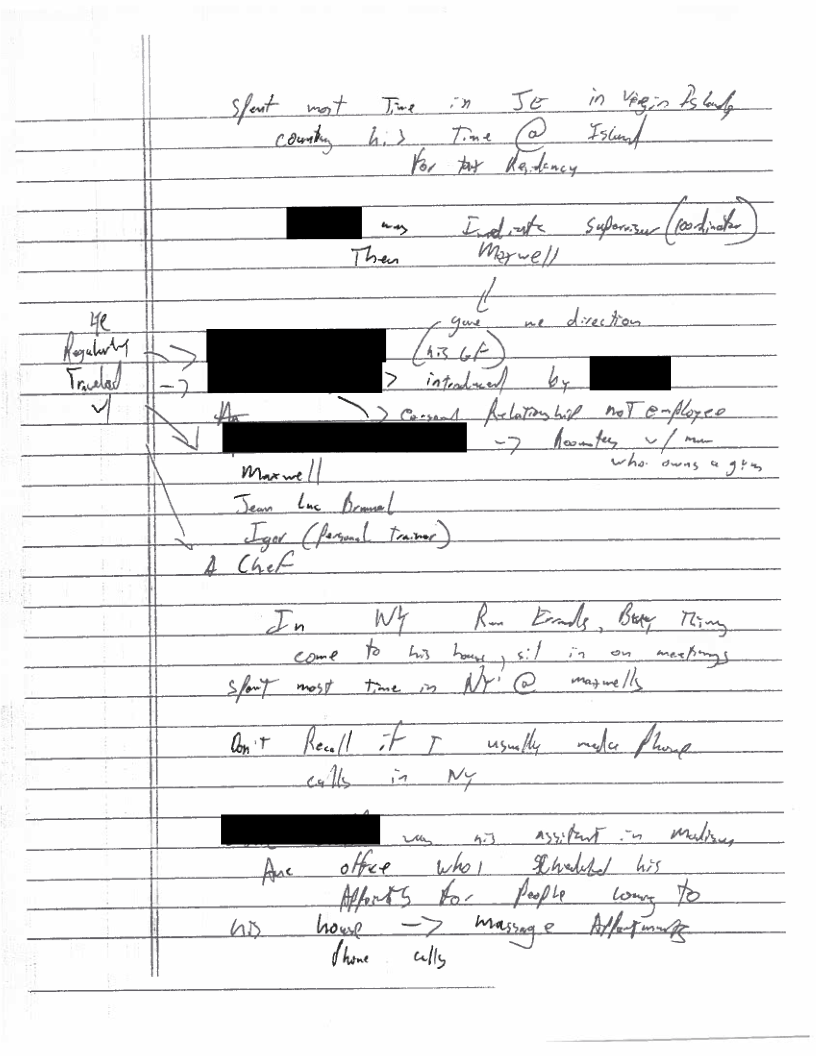 Spent most Time in JE in Virgin Islands
counting his Time @ Island
For tax Residency
was Imediate Supervisor (coordinator)
Then Maxwell
gave me direction
He
Regularly
Traveled
w/
(his GF)
> introduced by
Personal Relationship not employee
-> Roomates w/ man
who owns a gym
Maxwell
Jean Luc Brunel
Igor (Personal Trainer)
A Chef
In NY Run Errands, Buy Things
come to his house, sit in on meetings
Spent most time in NY @ maxwells
Don't Recall if I usually made Phone
calls in NY
was his Assistant in Madison
Ave office who Scheduled his
Appoints for People coming to
his house -> massage Appointments
Phone calls